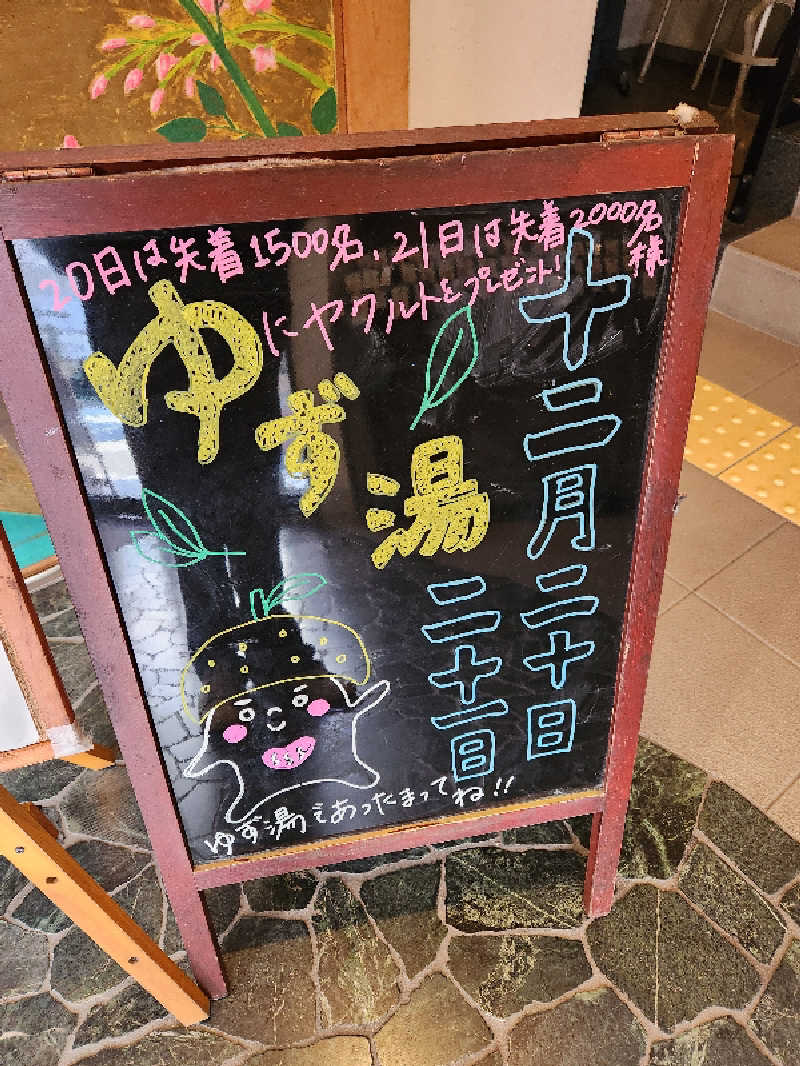 20日は先着1500名、21日は先着2000名様
にヤクルトをプレゼント!
ゆず湯
十二月二十日
二十一日
ゆず湯であったまってね!!